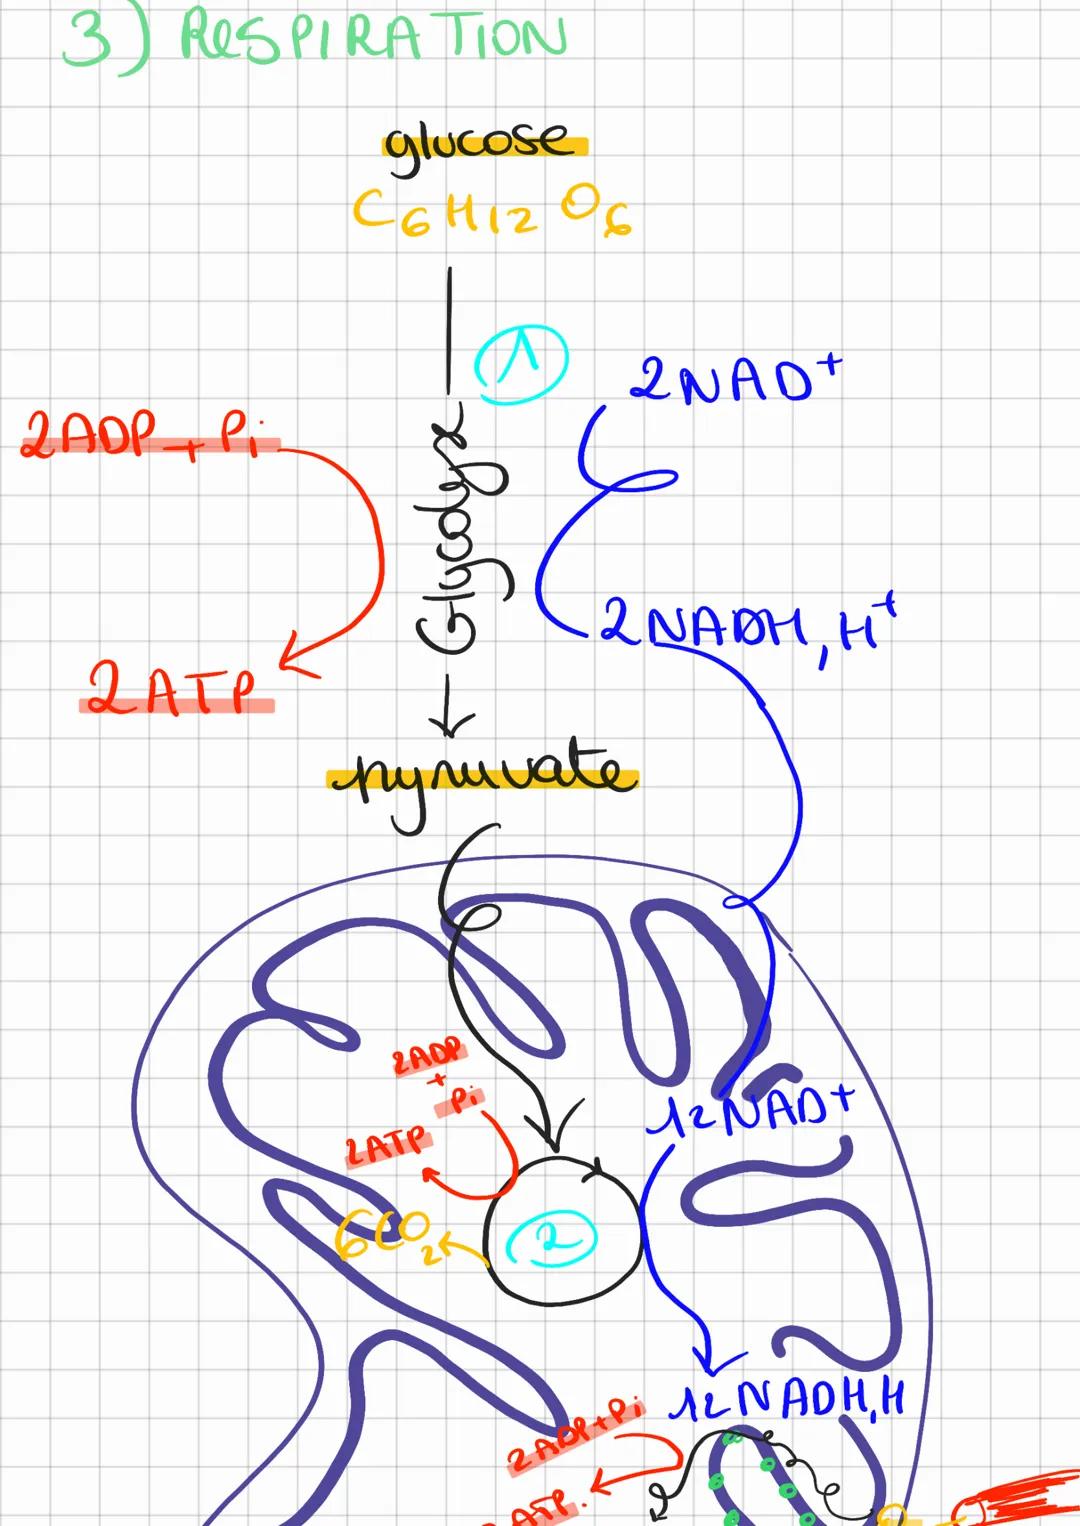 3) RESPIRATION
glucose
C6H12O6
1
2NAD+
2ADP + Pi
Glycolyse
2NADH, H+
2ATP
pyruvate
2ADP
+
Pi
12NAD+
2ATP
2
6CO2
12NADH,H
2ADP+Pi
ATP.